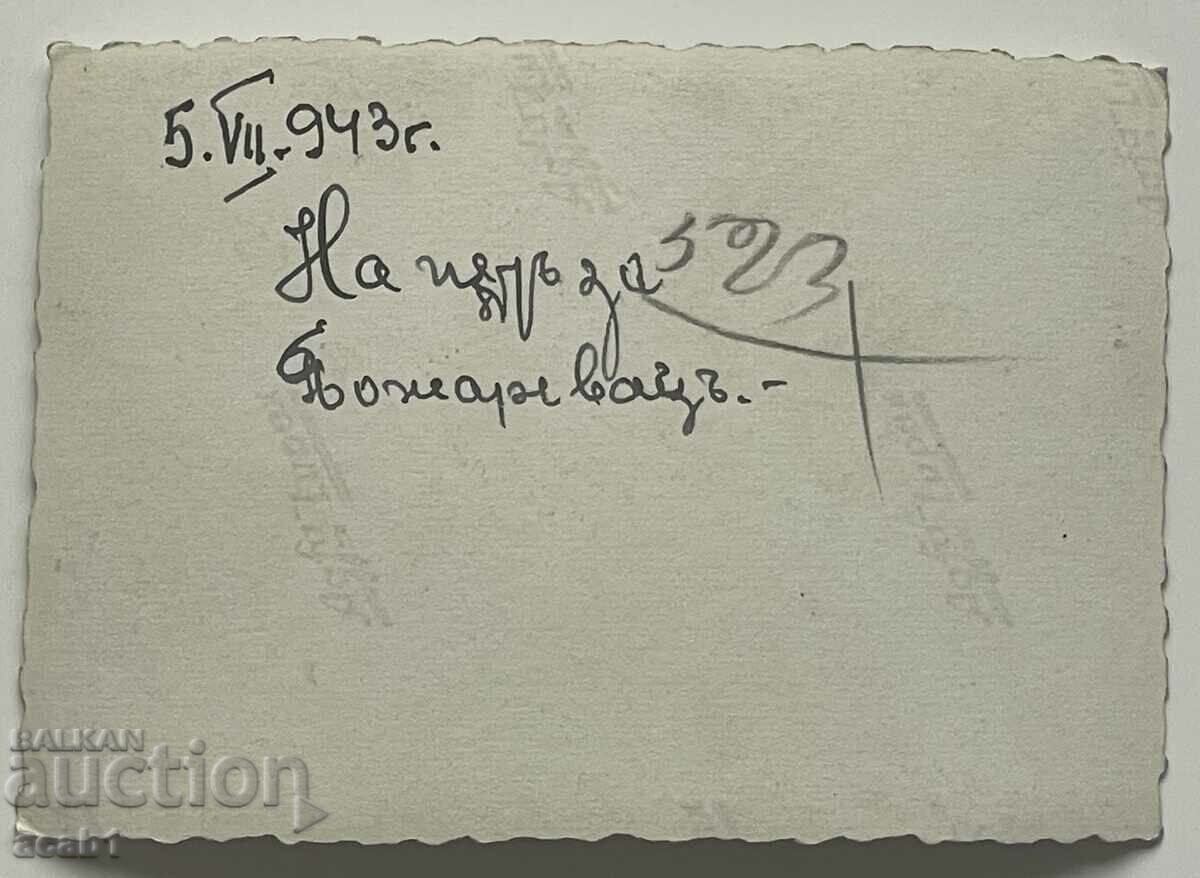 5.VII.943г.
На пътъ за
Пожаревацъ.-
523
BALKAN
auction
acab1